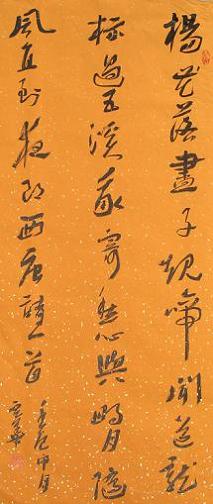 楊花落盡子規啼聞道龍
標過五溪我寄愁心與明月隨
風直到夜郎西唐詩一首